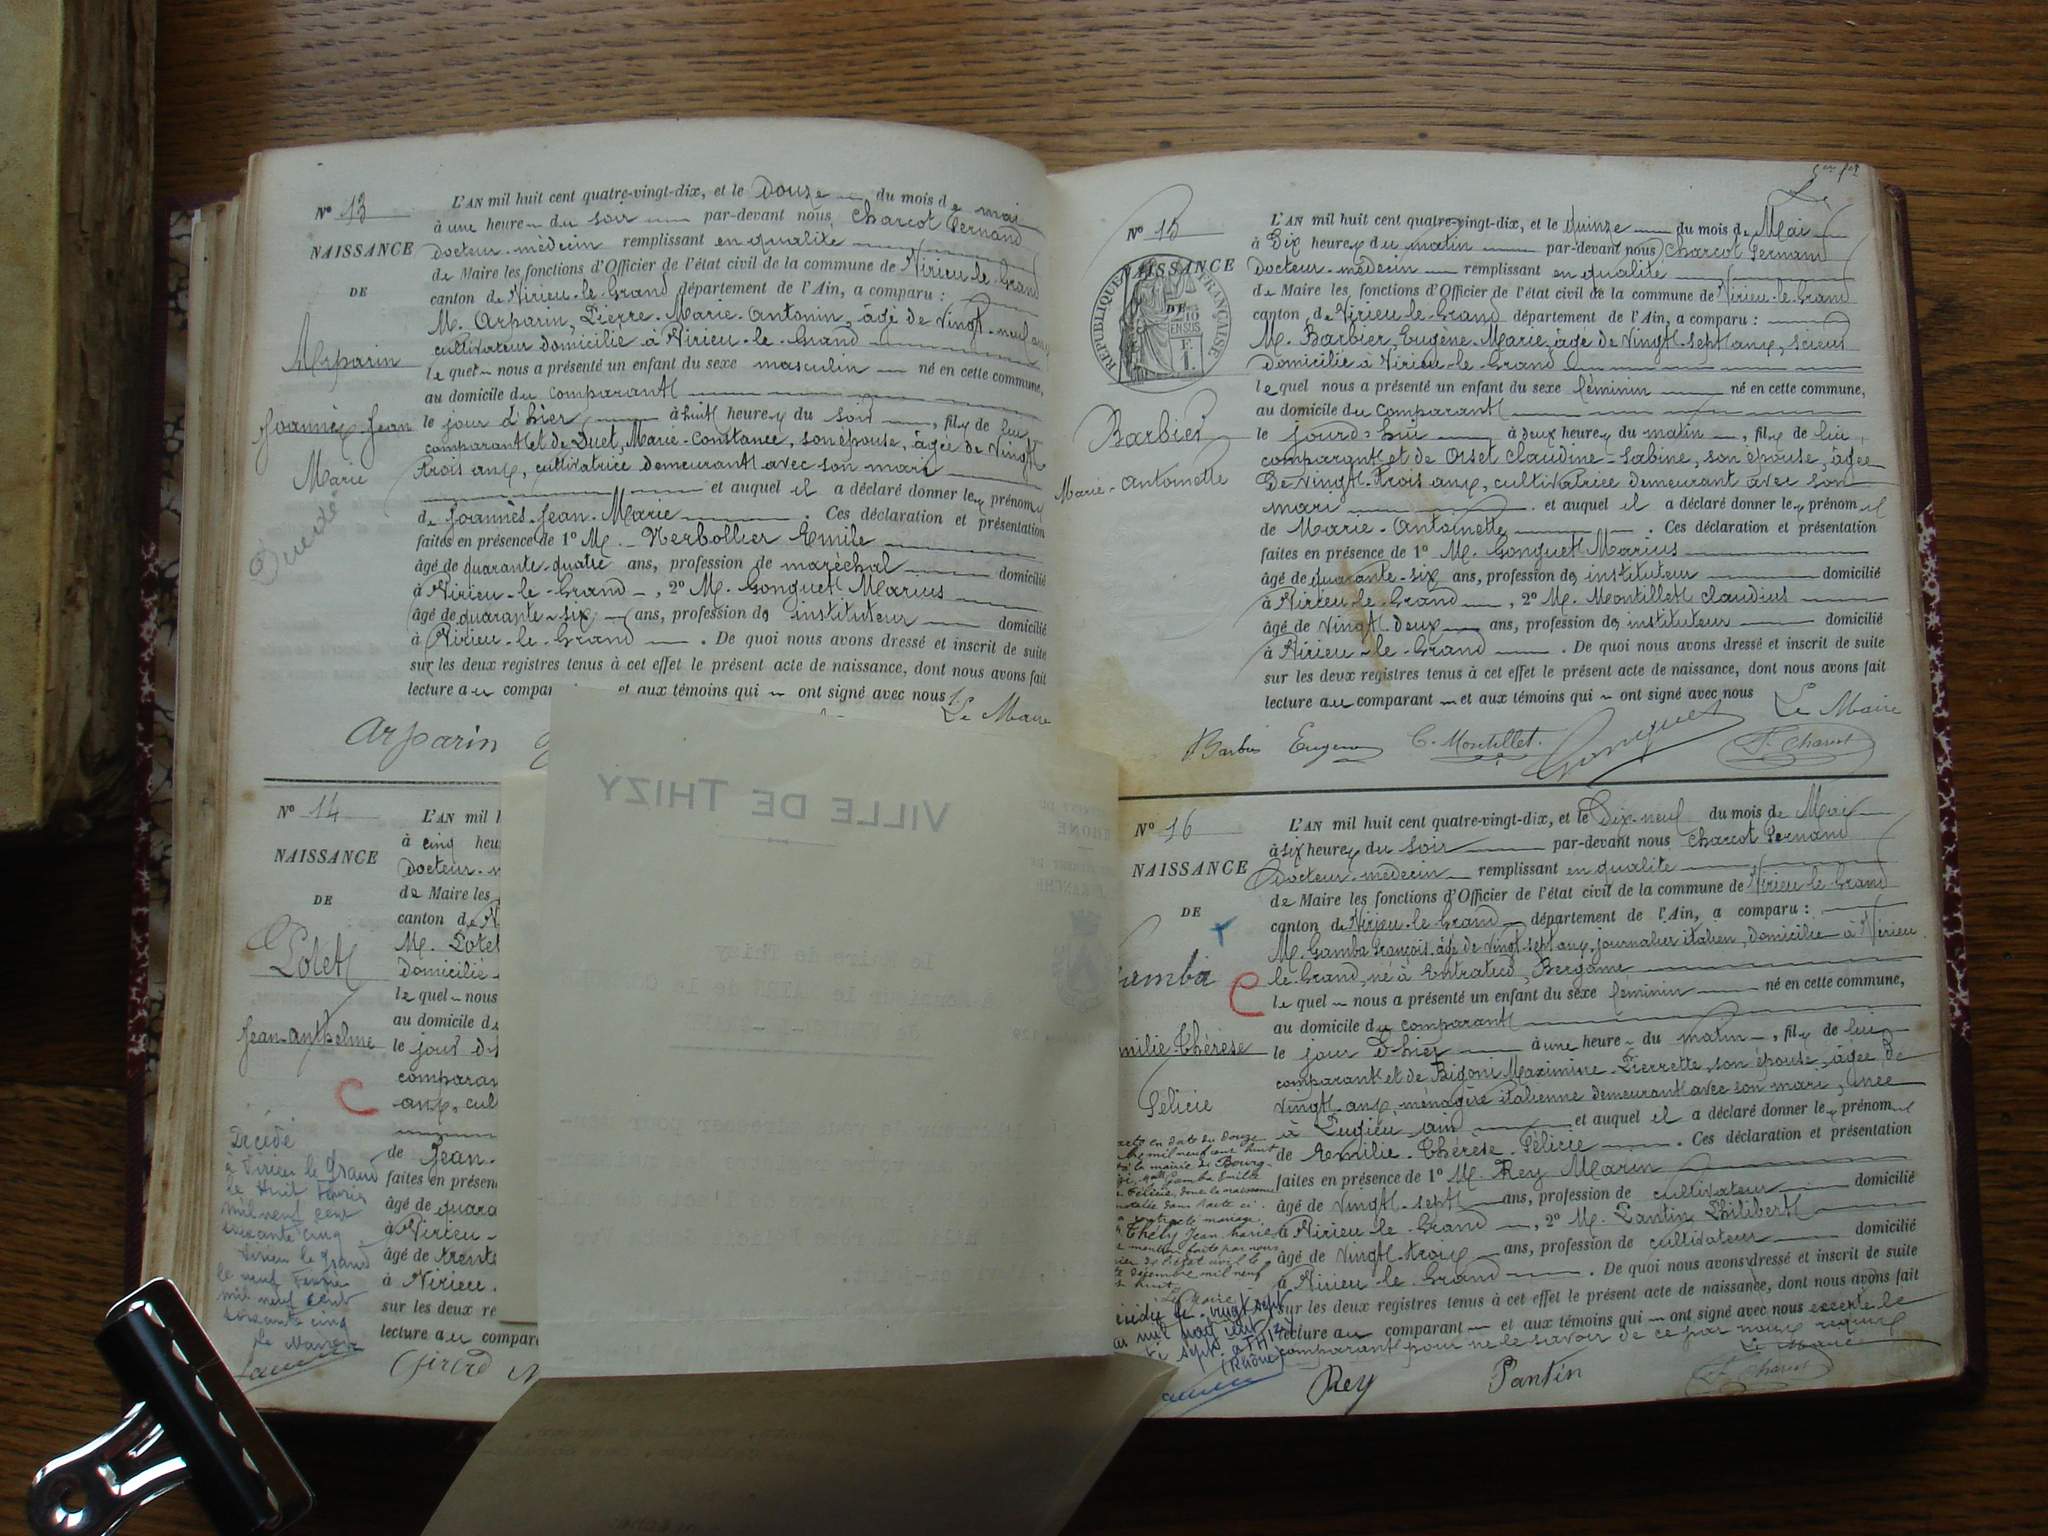 N° 13
NAISSANCE
DE
Arparin
Joannès-Jean
Marie
L'AN mil huit cent quatre-vingt-dix, et le Douze du mois de mai
à une heure du soir par-devant nous Charcot Fernand
Docteur-médecin remplissant en qualité
de Maire les fonctions d'Officier de l'état civil de la commune de Virieu-le-Grand
canton de Virieu-le-Grand département de l'Ain, a comparu :
M. Arparin, Pierre-Marie-Antonin, âgé de Vingt-neuf ans
cultivateur Domicilié à Virieu-le-Grand
lequel nous a présenté un enfant du sexe masculin né en cette commune,
au domicile du comparant
le jour d'hier à huit heures du soir, fils de lui
comparant et de Duet, Marie-Constance, son épouse, âgée de Vingt
trois ans, cultivatrice Demeurant avec son mari
et auquel il a déclaré donner les prénoms
de Joannès-Jean-Marie. Ces déclaration et présentation
faites en présence de 1° M. Herbollier Emile
âgé de quarante-quatre ans, profession de maréchal domicilié
à Virieu-le-Grand, 2° M. Gonguet Marius
âgé de quarante-six ans, profession de instituteur domicilié
à Virieu-le-Grand. De quoi nous avons dressé et inscrit de suite
sur les deux registres tenus à cet effet le présent acte de naissance, dont nous avons fait
lecture au compar et aux témoins qui ont signé avec nous
Le Maire
Arparin
N° 14
NAISSANCE
DE
Potet
Jean-Anthelme
C
Décédé
à Virieu le Grand
le Huit Février
mil neuf cent
soixante cinq
Virieu le Grand
le neuf Février
mil neuf cent
soixante cinq
Le Maire
L'AN mil h
à cinq heu
Docteur-m
de Maire les
canton de Vi
M. Potet
Domicilié
lequel nous
au domicile d
le jour d
comparan
ans, cult
de Jean-
faites en présen
âgé de quara
à Virieu
âgé de trente
à Virieu
sur les deux re
lecture au compar
Girard
VILLE DE THIZY
RHONE
Le Maire de Thizy
N° 15
NAISSANCE
DE
RÉPUBLIQUE FRANÇAISE
Barbier
Marie-Antoinette
L'AN mil huit cent quatre-vingt-dix, et le quinze du mois de Mai
à Dix heures du matin par-devant nous Charcot Fernand
Docteur-médecin remplissant en qualité
de Maire les fonctions d'Officier de l'état civil de la commune de Virieu-le-Grand
canton de Virieu-le-Grand département de l'Ain, a comparu :
M. Barbier, Eugène-Marie, âgé de Vingt-sept ans, scieur
Domicilié à Virieu-le-Grand
lequel nous a présenté un enfant du sexe féminin né en cette commune,
au domicile du comparant
le jourd'hui à deux heures du matin, fils de lui
comparant et de Orset Claudine-Sabine, son épouse, âgée
De Vingt-trois ans, cultivatrice demeurant avec son
mari et auquel il a déclaré donner les prénom
de Marie-Antoinette. Ces déclaration et présentation
faites en présence de 1° M. Gonguet Marius
âgé de quarante-six ans, profession de instituteur domicilié
à Virieu-le-Grand, 2° M. Montillet Claudius
âgé de vingt-Deux ans, profession de instituteur domicilié
à Virieu-le-Grand. De quoi nous avons dressé et inscrit de suite
sur les deux registres tenus à cet effet le présent acte de naissance, dont nous avons fait
lecture au comparant et aux témoins qui ont signé avec nous
Le Maire
Barbier Eugène C. Montillet. Gonguet F. Charcot
N° 16
NAISSANCE
DE
Gamba
milie-Thérèse
Félicie
C
L'AN mil huit cent quatre-vingt-dix, et le Dix-neuf du mois de Mai
à six heures du soir par-devant nous Charcot Fernand
Docteur-médecin remplissant en qualité
de Maire les fonctions d'Officier de l'état civil de la commune de Virieu-le-Grand
canton de Virieu-le-Grand département de l'Ain, a comparu :
M. Gamba François âgé de Vingt-sept ans, journalier italien, domicilié à Virieu
le-Grand, né à Entratico, Bergame
lequel nous a présenté un enfant du sexe féminin né en cette commune,
au domicile du comparant
le jour d'hier à une heure du matin, fils de lui
comparant et de Bigoni Maximine-Pierrette, son épouse, âgée de
Vingt ans, ménagère italienne demeurant avec son mari, née
à Pugieu, ain et auquel il a déclaré donner les prénom
de Emilie-Thérèse-Félicie. Ces déclaration et présentation
faites en présence de 1° M. Rey Marin
âgé de Vingt-sept ans, profession de cultivateur domicilié
à Virieu-le-Grand, 2° M. Pantin Philibert
âgé de Vingt-trois ans, profession de cultivateur domicilié
à Virieu-le-Grand. De quoi nous avons dressé et inscrit de suite
sur les deux registres tenus à cet effet le présent acte de naissance, dont nous avons fait
lecture au comparant et aux témoins qui ont signé avec nous excepté le
comparant pour ne le savoir de ce par nous requis
Le Maire
Rey Pantin F. Charcot
acte en date du douze
mil neuf cent huit
la mairie de Bourg-
Gamba Emilie
Félicie, dont la naissance
contracté mariage
Thély Jean-Marie
mention faite par nous
officier de l'état civil le
décembre mil neuf
cent huit
Le Maire
Décédée le vingt sept
mil neuf cent
sept à THIZY
(Rhône)